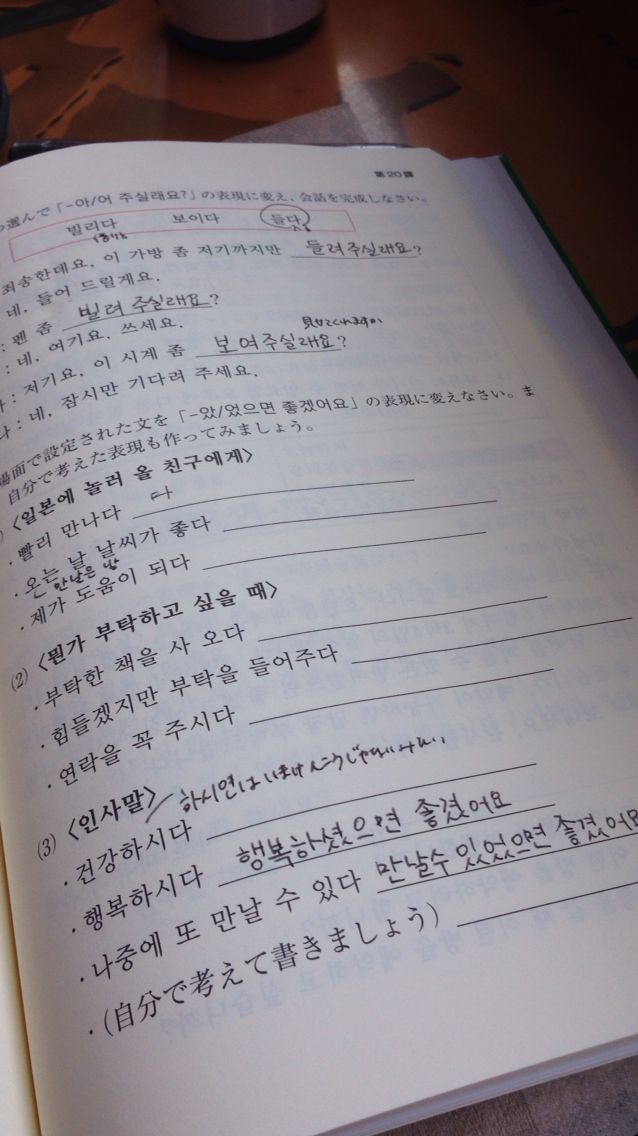 第20課
選んで「-아/어 주실래요?」の表現に変え、会話を完成しなさい。
빌리다 보이다 들다
죄송한데요, 이 가방 좀 저기까지만 들려주실래요?
네, 들어 드릴게요.
: 펜 좀 빌려 주실래요?
: 네, 여기요. 쓰세요.
見せてくれますか
: 저기요, 이 시계 좀 보여주실래요?
나 : 네, 잠시만 기다려 주세요.
場面で設定された文を「-았/었으면 좋겠어요」の表現に変えなさい。ま
自分で考えた表現も作ってみましょう。
<일본에 놀러 올 친구에게>
· 빨리 만나다
· 오는 날 날씨가 좋다
· 제가 도움이 되다
(2) <뭔가 부탁하고 싶을 때>
· 부탁한 책을 사 오다
· 힘들겠지만 부탁을 들어주다
· 연락을 꼭 주시다
(3) <인사말> 하시면は
· 건강하시다
· 행복하시다 행복하셨으면 좋겠어요
· 나중에 또 만날 수 있다 만날수 있었으면 좋겠어요
· (自分で考えて書きましょう)